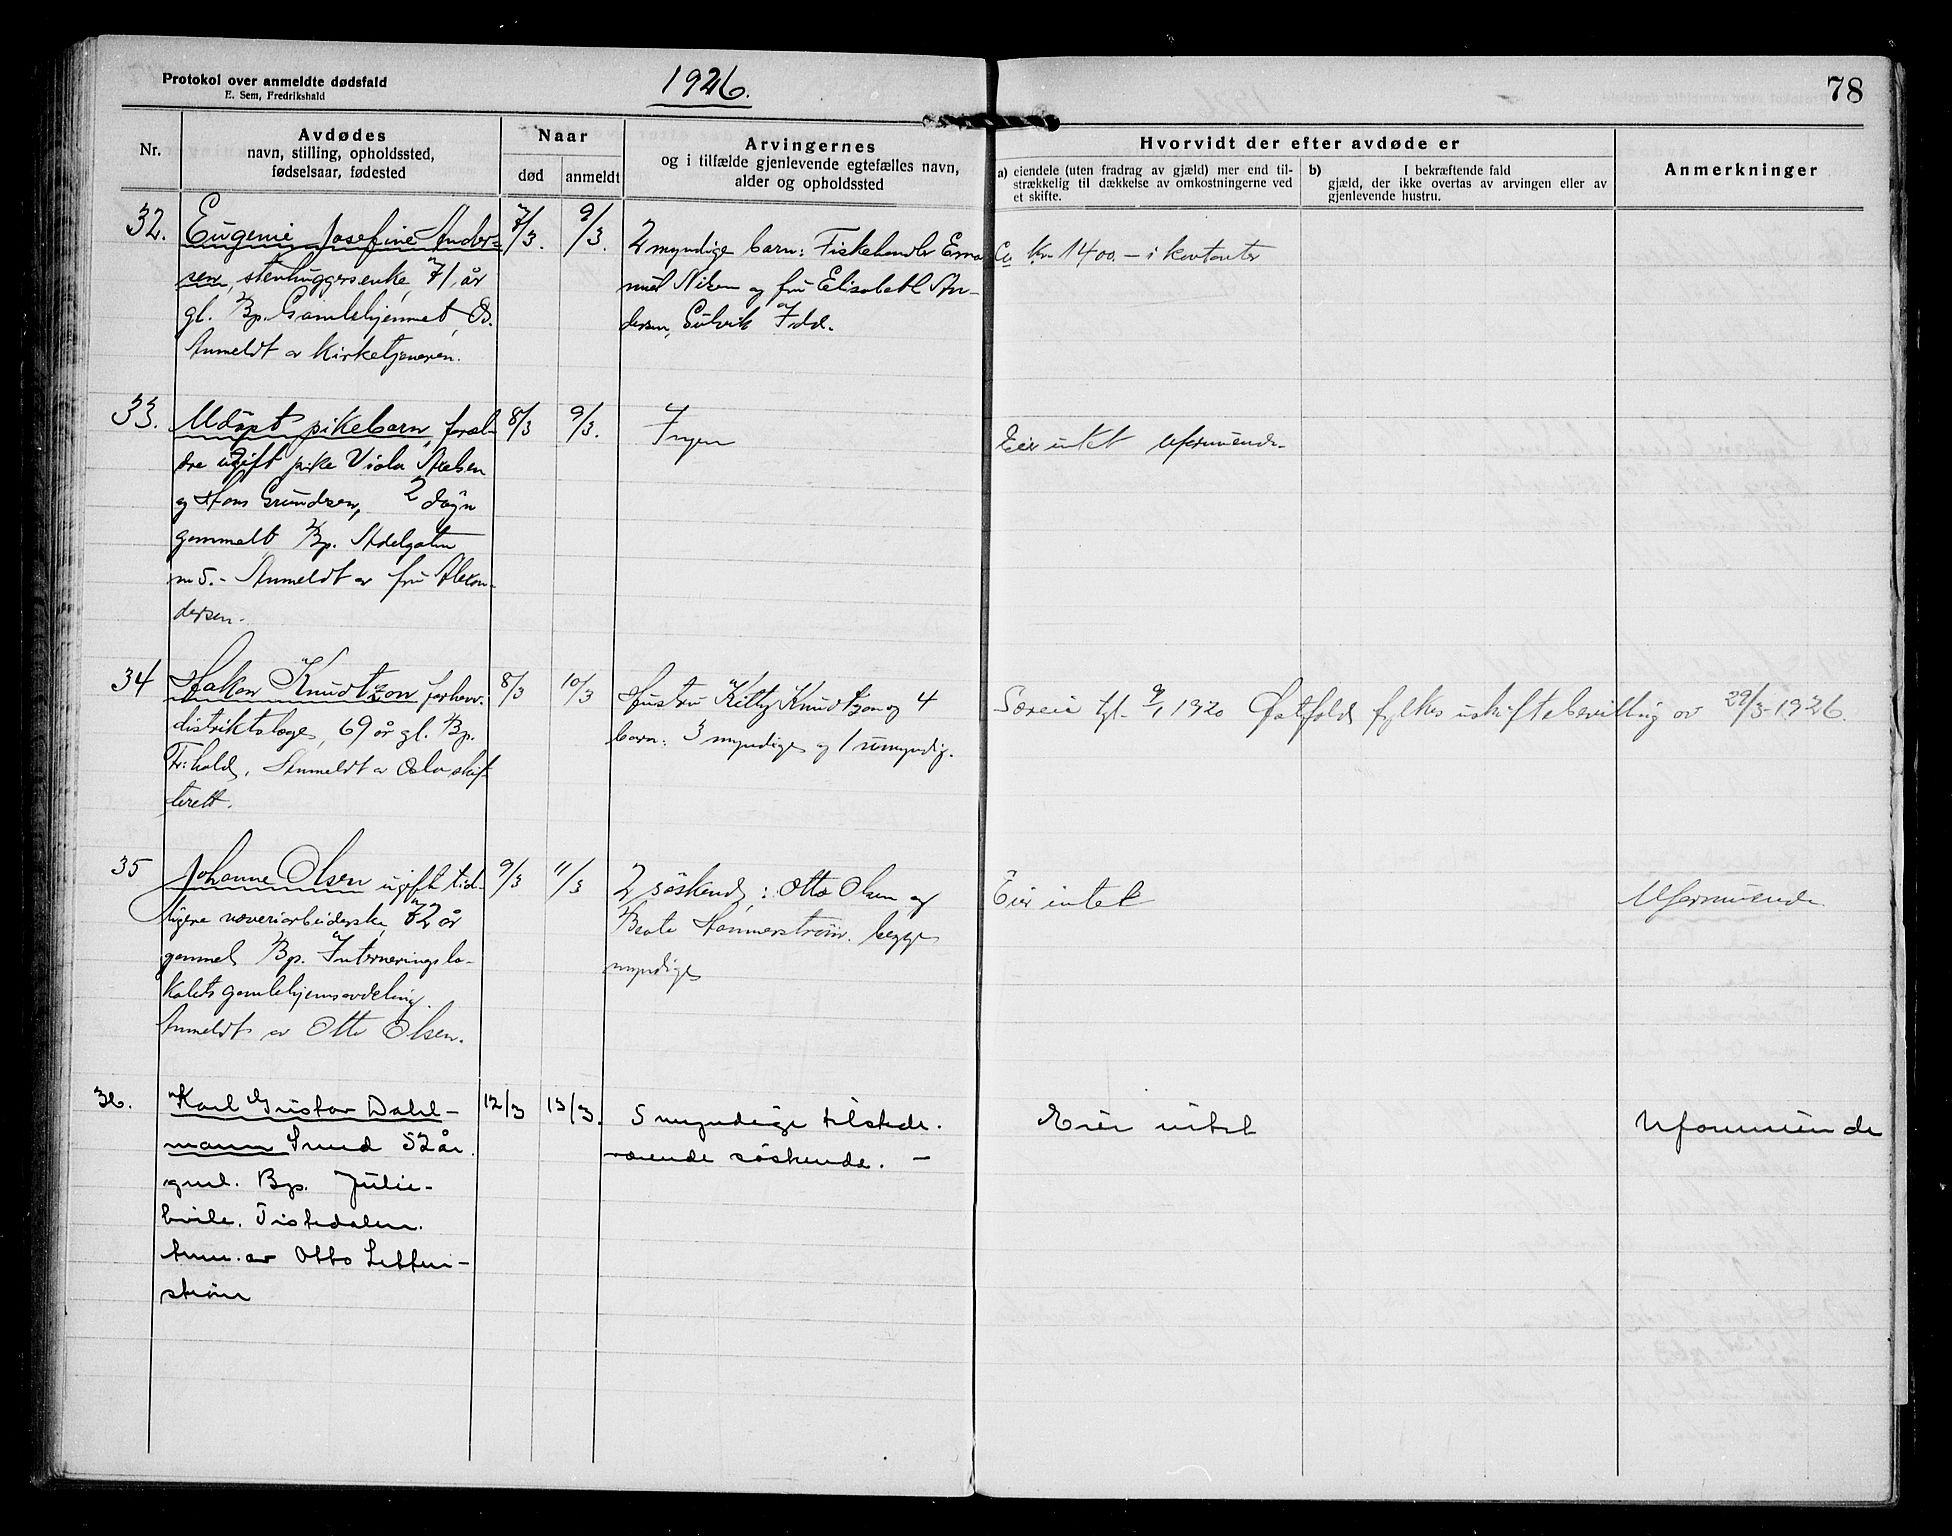 Protokol over anmeldte dødsfald
E. Sem, Fredrikshald
1926.
78
Nr.
Avdødes
navn, stilling, opholdssted,
fødselsaar, fødested
Naar
død
anmeldt
Arvingernes
og i tilfælde gjenlevende egtefælles navn,
alder og opholdssted
Hvorvidt der efter avdøde er
a) eiendele (uten fradrag av gjæld) mer end til-
strækkelig til dækkelse av omkostningerne ved
et skifte.
b) I bekræftende fald
gjæld, der ikke overtas av arvingen eller av
gjenlevende hustru.
Anmerkninger
32.
Eugenie Josefine Ander-
sen, stenhuggersenke, 71 år
gl. Bp. Gamlehjemmet,
Anmeldt av Kirketjeneren.
7/3.
9/3.
2 myndige barn: Fiskehandler Ema-
nuel Nilsen og fru Elisabeth An-
dersen, Idd.
Ca kr 1400.- i kontanter
33.
Udøpt pikebarn, foræl-
dre ugift pike Viola Axelsen
og Hans Grundsen, 2 døgn
gammelt Bp. Adelgaten
no 5. - Anmeldt av fru Alexan-
dersen.
8/3
9/3.
Ingen
Eier intet Uformuende
34
Hakon Knudtzon forhenv.
distriktslæge, 69 år gl. Bp.
Fr:hald, Anmeldt av Oslo skif-
terett.
8/3
10/3
Hustru Kitty Knudtzon og 4
barn: 3 myndige og 1 umyndig.
Særeie tgl. 9/1 1920 Østfold fylkes uskiftebevilling av 29/3-1926.
35
Johanne Olsen ugift tid-
ligere væveriarbeiderske, 72 år
gammel Bp. Interneringslo-
kalets gamlehjemsavdeling.
Anmeldt av Otto Olsen.
9/3
11/3
2 søskend: Otto Olsen og
Beate Hammerstrøm. begge
myndige
Eier intet
Uformuende
36.
Karl Gustav Dahl-
mann Smed 52 år.
gml. Bp. Julie-
hvile. Tistedalen.
Anm. av Otto Letten-
strøm
12/3
13/3.
5 myndige tilstede-
værende søskende. -
Eier intet
Uformuende